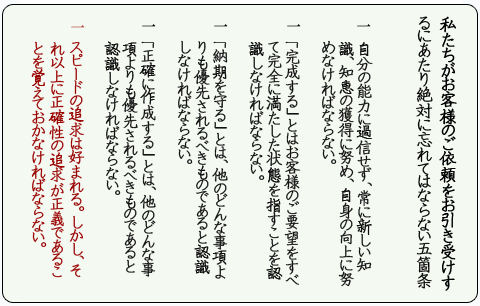 私たちがお客様のご依頼をお引き受けす
るにあたり絶対に忘れてはならない五箇条
一 自分の能力に過信せず、常に新しい知
識、知恵の獲得に努め、自身の向上に努
めなければならない。
一 「完成する」とはお客様のご要望をすべ
て完全に満たした状態を指すことを認
識しなければならない。
一 「納期を守る」とは、他のどんな事項よ
りも優先されるべきものであると認識
しなければならない。
一 「正確に作成する」とは、他のどんな事
項よりも優先されるべきものであると
認識しなければならない。
一 スピードの追求は好まれる。しかし、そ
れ以上に正確性の追求が正義であるこ
とを覚えておかなければならない。